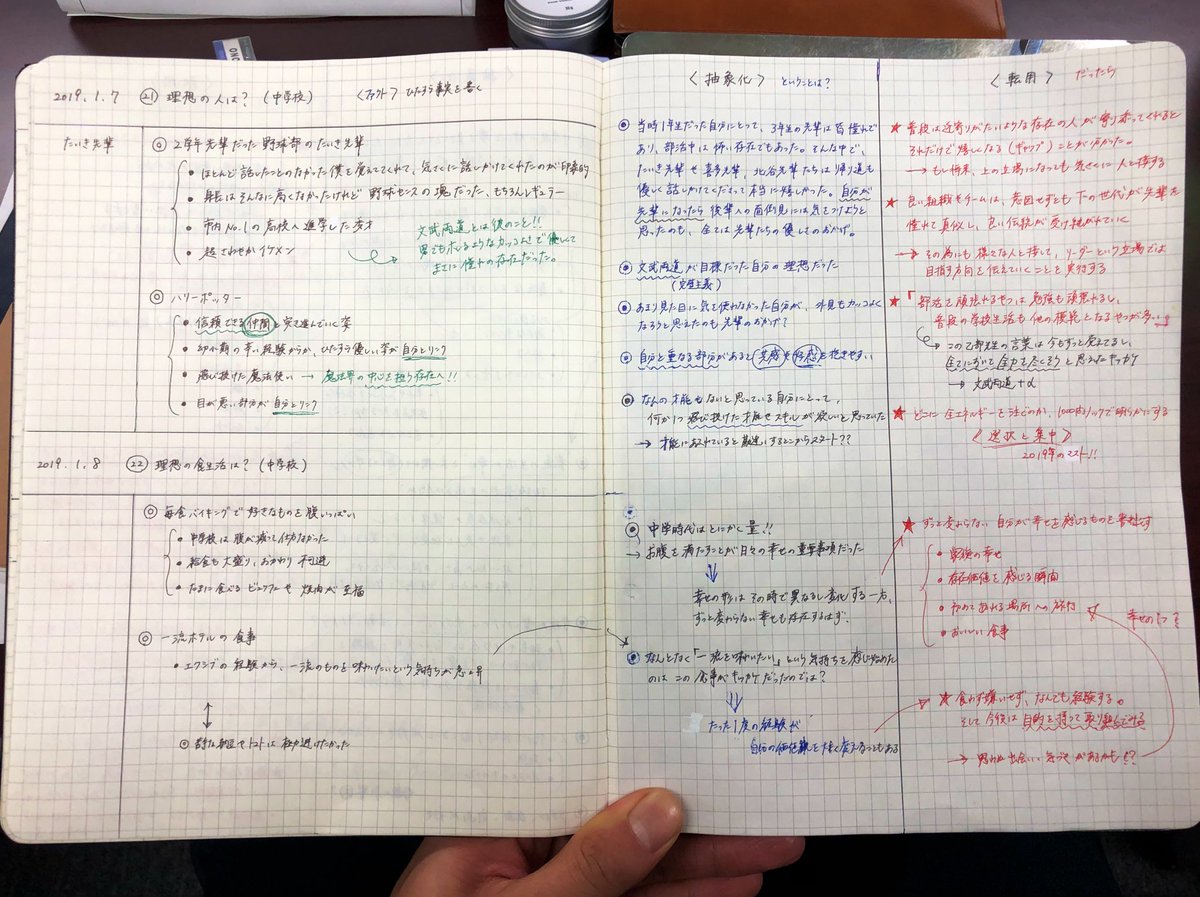 2019.1.7 ㉑ 理想の人は?(中学校) 〈ファクト〉ひたすら事実を書く
たいき先輩
◎ 2学年先輩だった野球部のたいき先輩
・ほとんど話したことのなかった僕を覚えてくれて、気さくに話しかけてくれたのが印象的
・身長はそんなに高くなかったけれど野球センスの塊だった、もちろんレギュラー
・市内No.1の高校へ進学した秀才
・超さわやかイケメン
文武両道とは彼のこと!!
男でもホレるようなカッコよさで優しくて
まさに憧れの存在だった。
◎ ハリーポッター
・信頼できる仲間と突き進んでいく姿
・幼少期の辛い経験からか、ひたすら優しい姿が自分とリンク
・飛び抜けた魔法使い → 魔法界の中心を担う存在へ!!
・目が悪い部分が自分とリンク
2019.1.8 ㉒ 理想の食生活は?(中学校)
◎ 毎食バイキングで好きなものを腹いっぱい
・中学校は腹が減って仕方なかった
・給食も大盛り、おかわり不可避
・たまに食べるビュッフェや焼肉が至福
◎ 一流ホテルの食事
・エクシブの経験から、一流のものを味わいたいという気持ちが急上昇
↕
◎ 納豆やトマトは極力避けたかった
〈抽象化〉ということは?
◎ 当時1年生だった自分にとって、3年生の先輩は皆憧れで
あり、部活中は怖い存在でもあった。そんな中で、
たいき先輩や喜多先輩、北谷先輩たちは帰り道も
優しく話しかけてくださって本当に嬉しかった。自分が
先輩になったら後輩への面倒見には気をつけようと
思ったのも、全ては先輩たちの優しさのおかげ。
◎ 文武両道が目標だった自分の理想だった
(完璧主義)
◎ あまり見た目に気を使わなかった自分が、外見もカッコよく
なろうと思えたのも先輩のおかげ?
◎ 自分と重なる部分があると共感や好感を抱きやすい
◎ なんの才能もないと思っている自分にとって、
何か1つ飛び抜けた才能やスキルが欲しいと思っていた
→ 才能にあふれていると勘違いするとこからスタート??
◎ 中学時代はとにかく量!!
→ お腹を満たすことが日々の幸せの重要事項だった
⇓
幸せの形はその時で異なるし変化する一方、
ずっと変わらない幸せも存在するはず。
◎ なんとなく「一流を味わいたい」という気持ちを感じ始めた
のはこの食事がキッカケだったのでは?
⇓
たった1度の経験が
自分の価値観を大きく変えることもある
〈転用〉だったら
★ 普段は近寄りがたいような存在の人が寄り添ってくれると
それだけで嬉しくなる(ギャップ)ことが分かった。
→ もし将来、上の立場になっても気さくに人と接する
★ 良い組織やチームは、意図せずとも下の世代が先輩を
憧れて真似し、良い伝統が受け継がれていく
→ その為にも様々な人と接して、リーダーという立場では
目指す方向を伝えていくことを実行する
★「部活を頑張れるやつは勉強も頑張れるし、
普段の学校生活も他の模範となるやつが多い」
この乙部先生の言葉は今もずっと覚えてるし、
全てにおいて全力を尽くそうと思えたキッカケ
→ 文武両道+α
★ どこに全エネルギーを注ぐのか、1000問ノックで明らかにする
〈選択と集中〉
2019年のマスト!!
★ ずっと変わらない自分が幸せを感じるものを書き出す
・家族の幸せ
・存在価値を感じる瞬間
・初めて訪れる場所への旅行
・おいしい食事
幸せの1つ!
★ 食わず嫌いせず、なんでも経験する。
そして今後は目的を持って取り組んでみる
→ 思わぬ出会い・気づきがあるかも!?